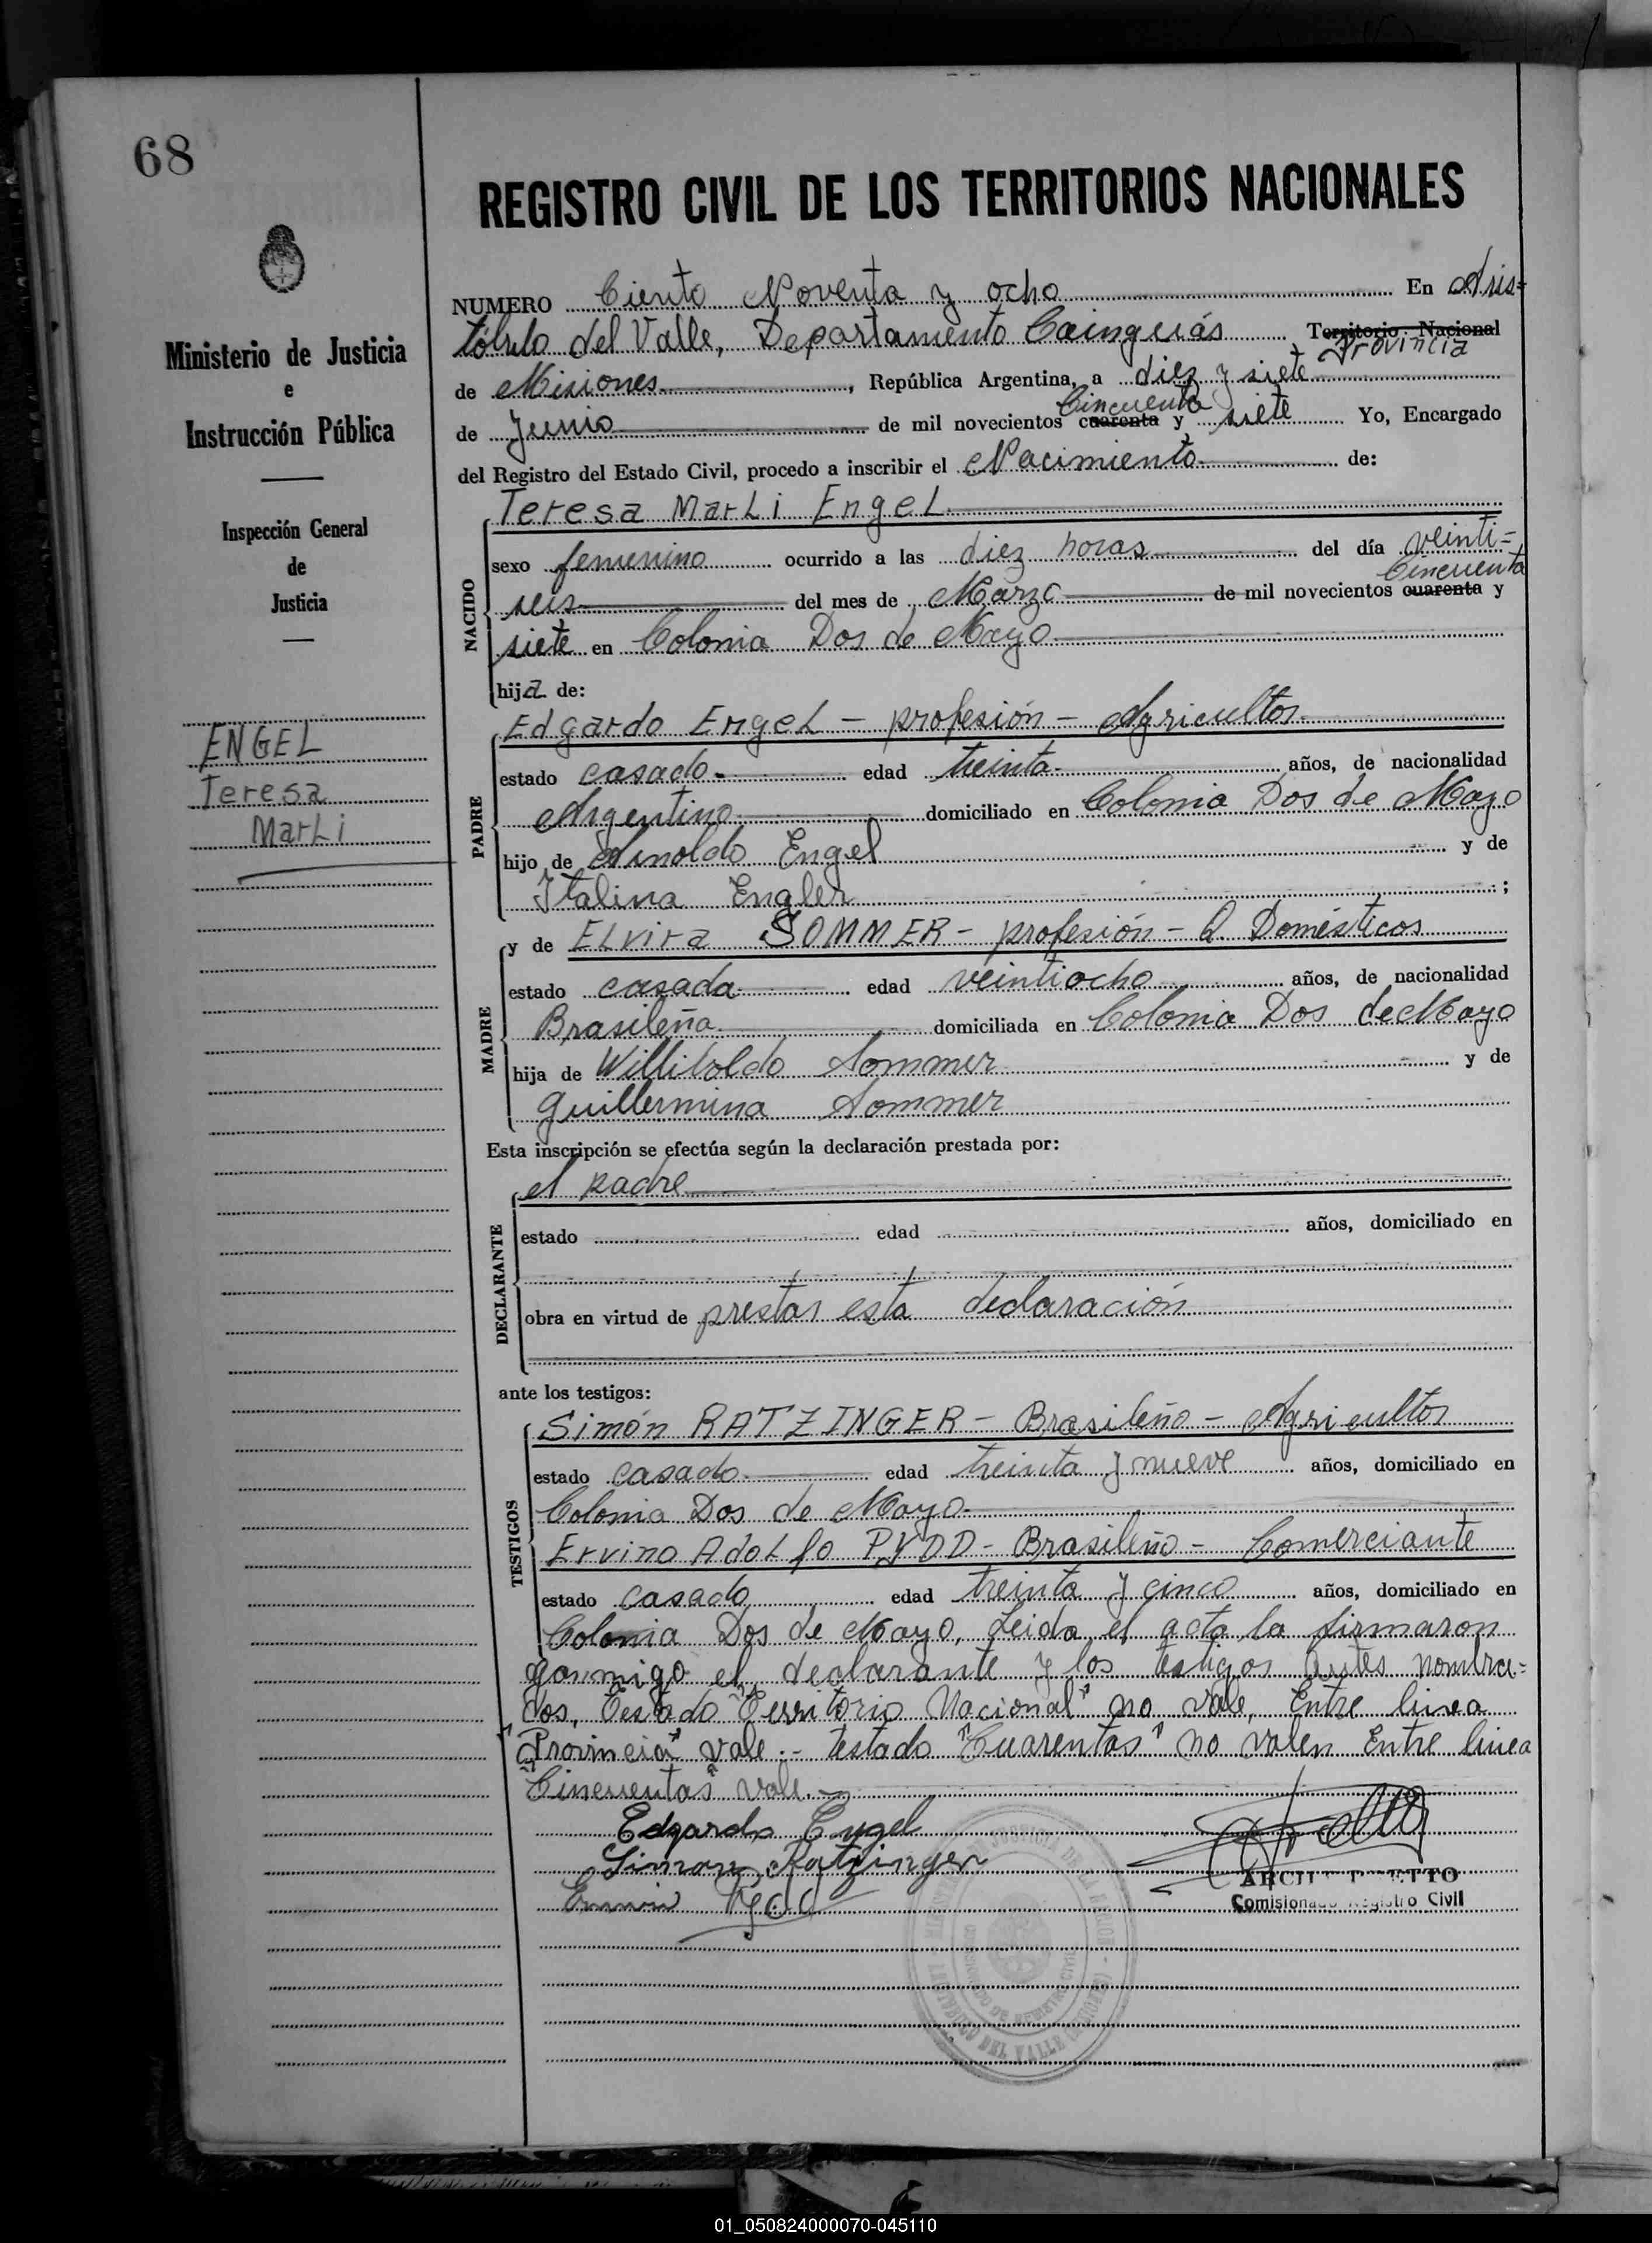 68
REGISTRO CIVIL DE LOS TERRITORIOS NACIONALES
Ministerio de Justicia
e
Instrucción Pública
Inspección General
de
Justicia
ENGEL
Teresa
Marli
NUMERO Ciento Noventa y ocho En Aris=
tóbulo del Valle, Departamento Cainguás Territorio Nacional
Provincia
de Misiones, República Argentina, a diez y siete
Cincuenta
de Junio de mil novecientos cuarenta y siete Yo, Encargado
del Registro del Estado Civil, procedo a inscribir el Nacimiento de:
NACIDO
Teresa Marli Engel
sexo femenino ocurrido a las diez horas del día veinti=
Cincuenta
seis del mes de Marzo de mil novecientos cuarenta y
siete en Colonia Dos de Mayo
hija de:
PADRE
Edgardo Engel - profesión - Agricultor
estado casado edad treinta años, de nacionalidad
Argentino domiciliado en Colonia Dos de Mayo
hijo de Arnoldo Engel y de
Italina Engler ;
MADRE
y de Elvira SOMMER - profesión - Q. Domésticos
estado casada edad veintiocho años, de nacionalidad
Brasileña domiciliada en Colonia Dos de Mayo
hija de Willibaldo Sommer y de
Guillermina Sommer
Esta inscripción se efectúa según la declaración prestada por:
DECLARANTE
el padre
estado edad años, domiciliado en
obra en virtud de prestar esta declaración
ante los testigos:
TESTIGOS
Simón RATZINGER - Brasileño - Agricultor
estado casado edad treinta y nueve años, domiciliado en
Colonia Dos de Mayo
Ervino Adolfo PYDD - Brasileño - Comerciante
estado casado edad treinta y cinco años, domiciliado en
Colonia Dos de Mayo, Leida el acta la firmaron
conmigo el declarante y los testigos antes nombra=
dos, Testado "Territorio Nacional" no vale, Entre linea
"Provincia" vale.- testado "Cuarentas" no valen Entre linea
"Cincuentas" vale.-
Edgardo Engel
Simon Ratzinger
Pydd
Comisionado Registro Civil
ARISTOBULO DEL VALLE (MISIONES)
01_050824000070-045110